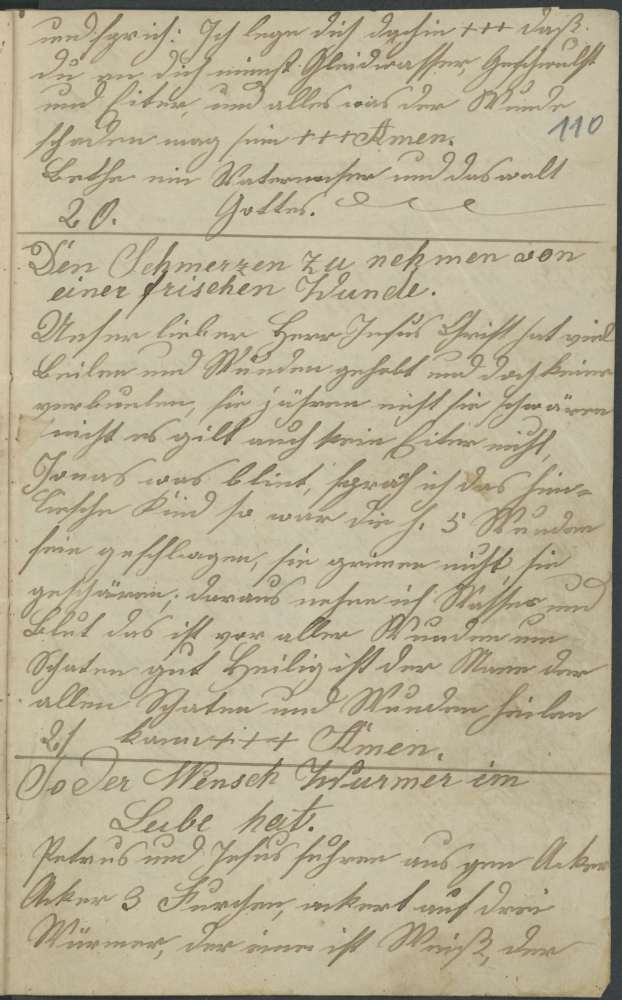 und sprich: Ich lege dich dahin +++ daß
du an dich nimst Gliedwasser, Geschwulst
und Eiter, und alles was der Wunde
schaden mag sein +++ Amen.
110
Bethe ein Vaterunser und das walt
20. Gottes.
Den Schmerzen zu nehmen von
einer frischen Wunde.
Unser lieber Herr Jesus Christ hat viel
Beilen und Wunden gehabt und doch keine
verbunden, sie jähren nicht sie schwären
nicht es gilt auch kein Eiter nicht,
Jonas was blint, sprach ich das him=
lische Kind so war die h. 5 Wunden
sein geschlagen, sie grinen nicht sie
geschären, daraus nehm ich Wasser und
Blut das ist vor aller Wunden um
Schaten gut Heilig ist der Mann der
allen Schaten und Wunden heilen
21 kann +++ Amen.
So der Mensch Würmer im
Leibe hat.
Petrus und Jesus fuhren aus gen Acker
Acker 3 Furchen, ackert auf drei
Würmer, der eine ist Weiß, der